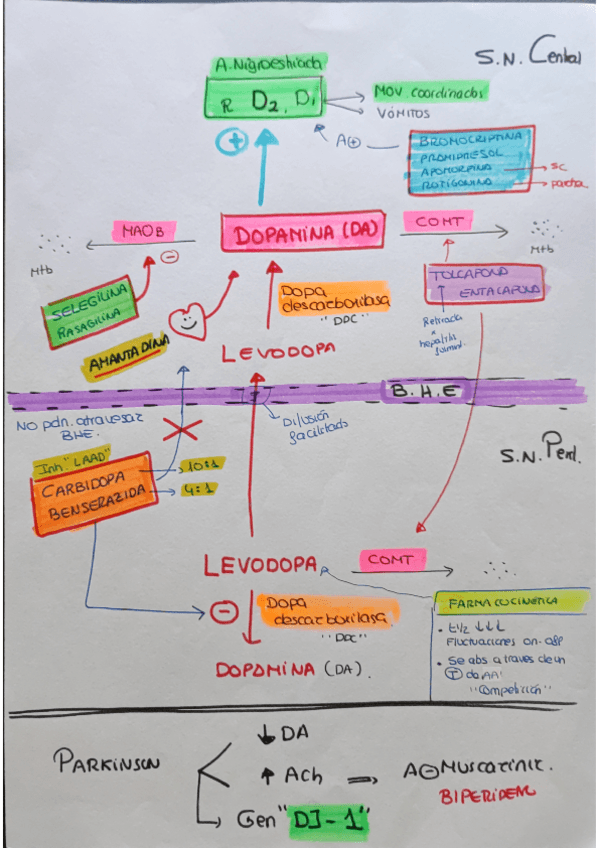 S.N. Central
A. Nigroestriada
R D2, D1
MOV coordinados
VÓMITOS
+
A⊕
BROMOCRIPTINA
PRAMIPRESOL
APOMORFINA
ROTIGONINA
SC
parche
MAOB
DOPAMINA (DA)
COMT
Mtb
Mtb
SELEGILINA
RASAGILINA
Dopa
descarboxilasa
"DDC"
TOLCAPONO
ENTACAPONO
AMANTADINA
LEVODOPA
Retirada
x
hepatitis
fulmin.
B.H.E
NO pdn. atravesar
BHE.
Difusión
facilitada
S.N. Perif.
Inh "LAAD"
CARBIDOPA
BENSERAZIDA
10:1
4:1
LEVODOPA
COMT
Dopa
descarboxilasa
"DDC"
FARMACOCINÉTICA
• t1/2 ↓↓↓
Fluctuaciones on-off
• Se abs a traves de un
Ⓣ de AA
"Competición"
DOPAMINA (DA).
↓ DA
PARKINSON
↑ Ach ⟹ A⊖ Muscarinic.
BIPERIDENO
Gen "DJ-1"